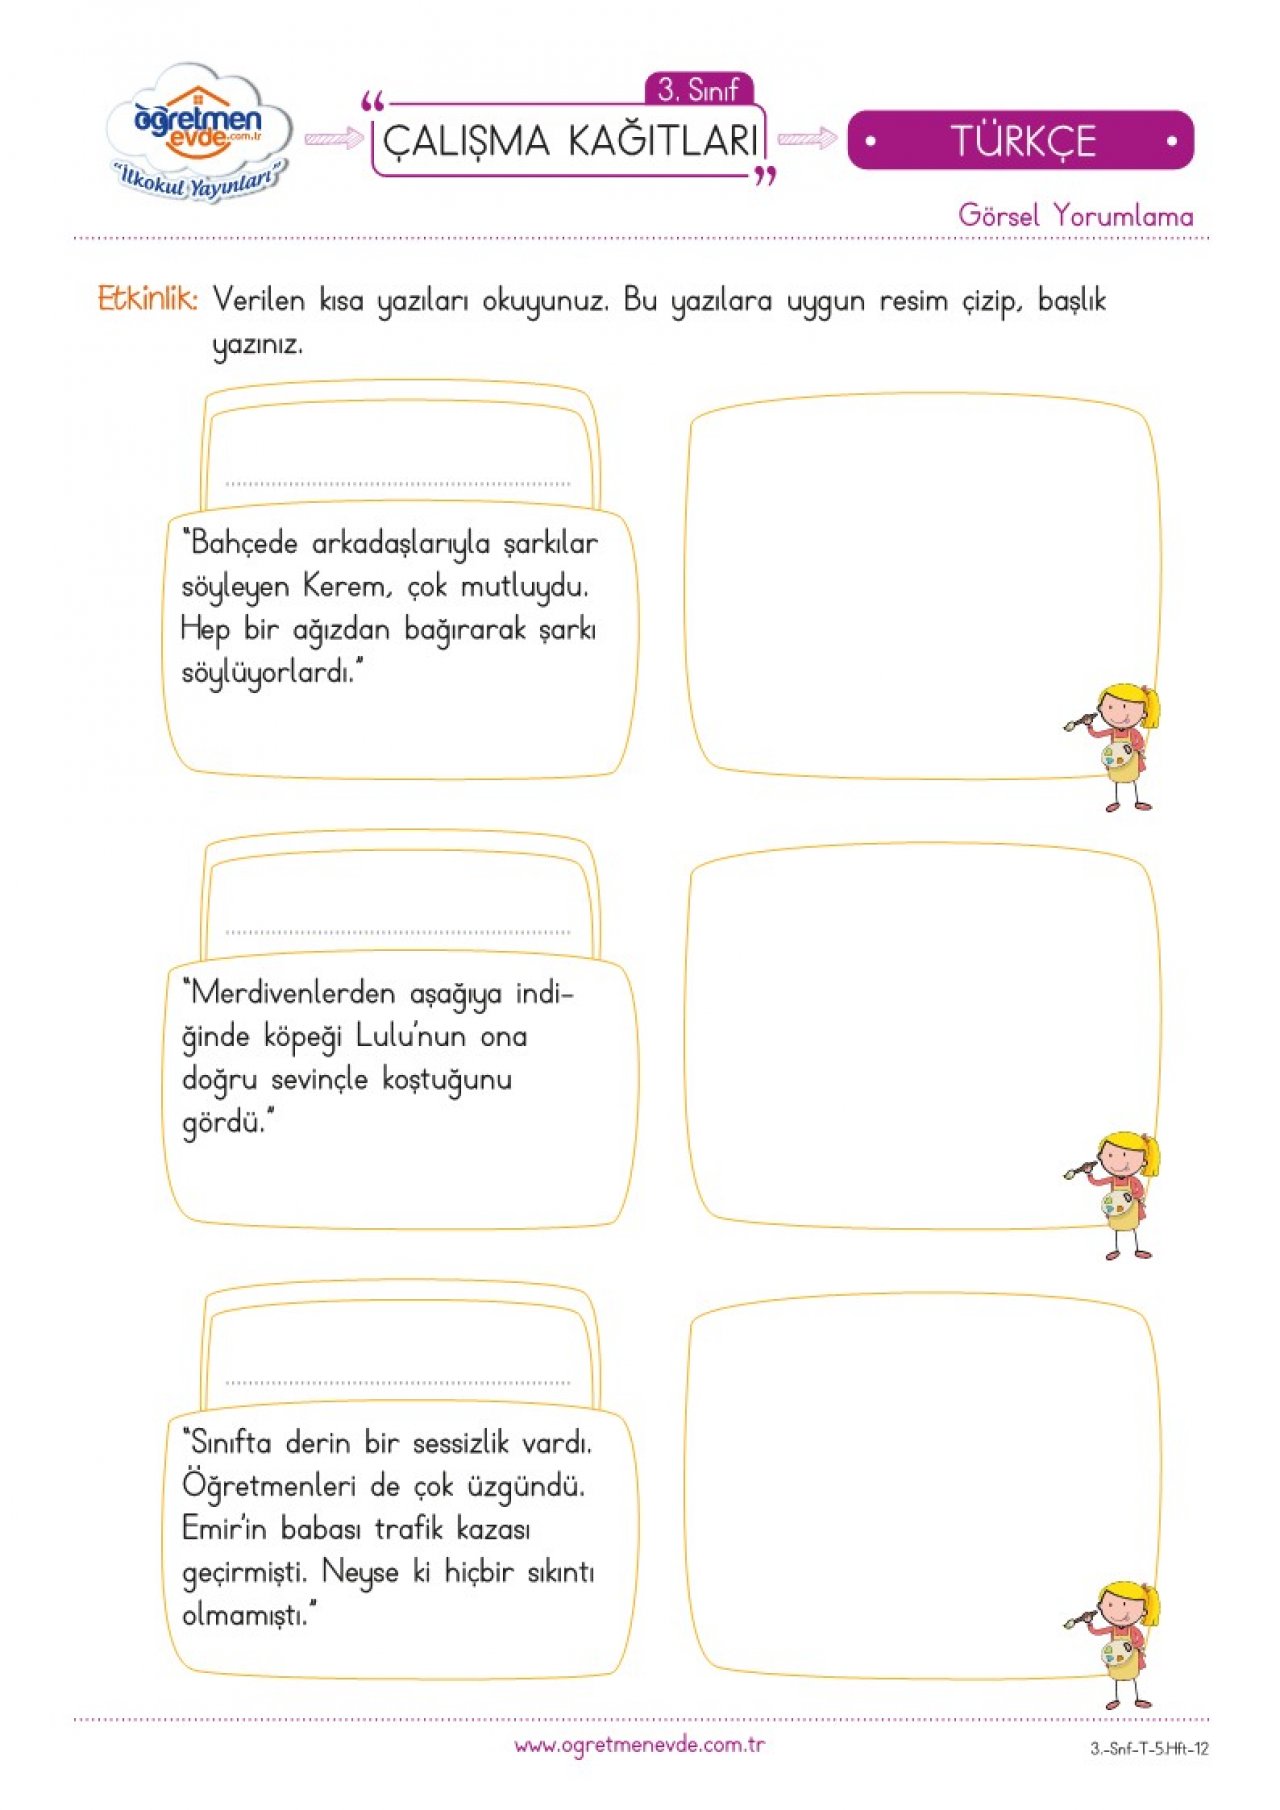 öğretmen
evde.com.tr
"İlkokul Yayınları"
3. Sınıf
"ÇALIŞMA KAĞITLARI"
TÜRKÇE
Görsel Yorumlama
Etkinlik: Verilen kısa yazıları okuyunuz. Bu yazılara uygun resim çizip, başlık
yazınız.
"Bahçede arkadaşlarıyla şarkılar
söyleyen Kerem, çok mutluydu.
Hep bir ağızdan bağırarak şarkı
söylüyorlardı."
"Merdivenlerden aşağıya indi-
ğinde köpeği Lulu'nun ona
doğru sevinçle koştuğunu
gördü."
"Sınıfta derin bir sessizlik vardı.
Öğretmenleri de çok üzgündü.
Emir'in babası trafik kazası
geçirmişti. Neyse ki hiçbir sıkıntı
olmamıştı."
www.ogretmenevde.com.tr
3.-Snf-T-5.Hft-12